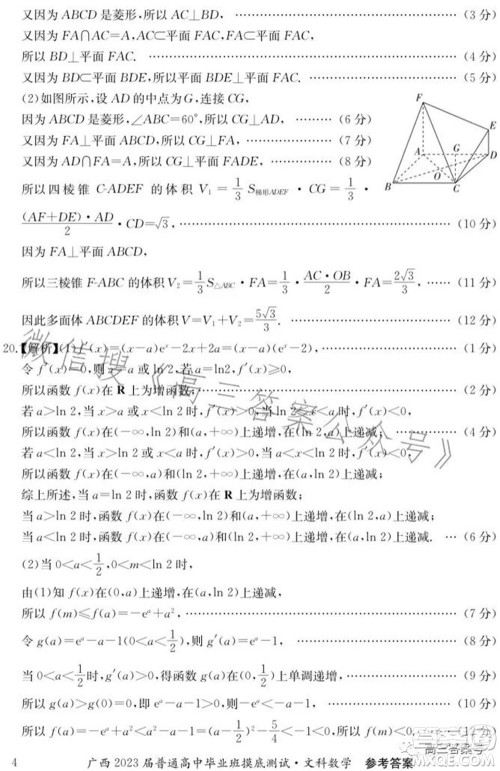 又因为 ABCD 是菱形,所以 AC⊥BD, (3 分)
又因为 FA∩AC=A,AC⊂平面 FAC,FA⊂平面 FAC,
所以 BD⊥平面 FAC. (4 分)
又因为 BD⊂平面 BDE,所以平面 BDE⊥平面 FAC. (5 分)
(2)如图所示,设 AD 的中点为 G,连接 CG,
因为 ABCD 是菱形,∠ABC=60°,所以 CG⊥AD, (6 分)
又因为 FA⊥平面 ABCD,所以 CG⊥FA, (7 分)
又因为 AD∩FA=A,所以 CG⊥平面 FADE, (8 分)
F
E
A
G
D
B
O
C
所以四棱锥 C-ADEF 的体积 V₁ = 1/3 S梯形ADEF · CG = 1/3 ·
(AF+DE)·AD/2 · CD=√3, (10 分)
因为 FA⊥平面 ABCD,
所以三棱锥 F-ABC 的体积 V₂ = 1/3 S△ABC · FA = 1/3 · AC·OB/2 · FA = 2√3/3, (11 分)
因此多面体 ABCDEF 的体积 V=V₁+V₂ = 5√3/3. (12 分)
20.【解析】(1)f′(x)=(x-a)eˣ-2x+2a=(x-a)(eˣ-2), (1 分)
令 f′(x)=0,则 x=a 或 ln 2,若 a=ln2,f′(x)≥0,
所以函数 f(x)在 R 上为增函数; (2 分)
若 a>ln 2,当 x>a 或 x<ln 2 时,f′(x)>0,当 ln 2<x<a 时,f′(x)<0,
所以函数 f(x)在(-∞,ln 2)和(a,+∞)上递增,在(ln 2,a)上递减; (4 分)
若 a<ln 2,当 x>ln 2 或 x<a 时,f′(x)>0,当 a<x<ln 2 时,f′(x)<0,
所以函数 f(x)在(-∞,a)和(ln 2,+∞)上递增,在(a,ln 2)上递减;
综上所述,当 a=ln 2 时,函数 f(x)在 R 上为增函数;
当 a>ln 2 时,函数 f(x)在(-∞,ln 2)和(a,+∞)上递增,在(ln 2,a)上递减;
当 a<ln 2 时,函数 f(x)在(-∞,a)和(ln 2,+∞)上递增,在(a,ln 2)上递减. (6 分)
(2)当 0<a<1/2,0<m<ln 2 时,
由(1)知 f(x)在(0,a)上递增,在(a,ln 2)上递减,
所以 f(m)≤f(a)=-eᵃ+a², (7 分)
令 g(a)=eᵃ-a-1(0<a<1/2),则 g′(a)=eᵃ-1, (8 分)
当 0<a<1/2 时,g′(a)>0,得函数 g(a)在(0,1/2)上单调递增, (9 分)
所以 g(a)>g(0)=0,即 eᵃ-a-1>0,则-eᵃ<-a-1, (10 分)
所以 f(a)=-eᵃ+a²<a²-a-1=(a-1/2)²-5/4<-1<0,所以 f(m)<0. (12 分)
4 广西 2023 届普通高中毕业班摸底测试·文科数学 参考答案
微信搜《高三答案公众号》
高三答案号